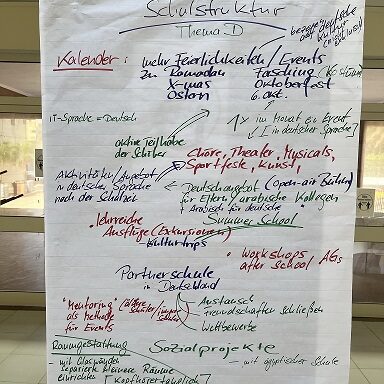 Schulstruktur
Thema D
bezogen auf deutsche
Kultur
Kalender:
mehr Feierlichkeiten / Events
zu Ramadan
X-mas
Ostern
Fasching
Oktoberfest
6. Okt.
IT-Sprache = Deutsch
1x im Monat ein Event
[in deutscher Sprache]
aktive Teilhabe
der Schüler
Chöre, Theater, Musicals,
Sportfeste, Kunst,
Aktivitäten/Angebot
in deutscher Sprache
nach der Schulzeit
Deutschangebot (Open-air Bühne)
für Eltern/arabische Kollegen
+ Arabisch für deutsche
Summer School
• lehrreiche
Ausflüge (Exkursionen)
Kulturtrips
• Workshops AGs
after school
Partnerschule
in Deutschland
"Mentoring"
als Methode
für Events
(ältere
Schüler/
Austausch
Freundschaften schließen
Wettbewerbe
Raumgestaltung
Sozialprojekte
- mit Glaswänden
separate kleinere Räume
einrichten
- mit ägyptischer Schule